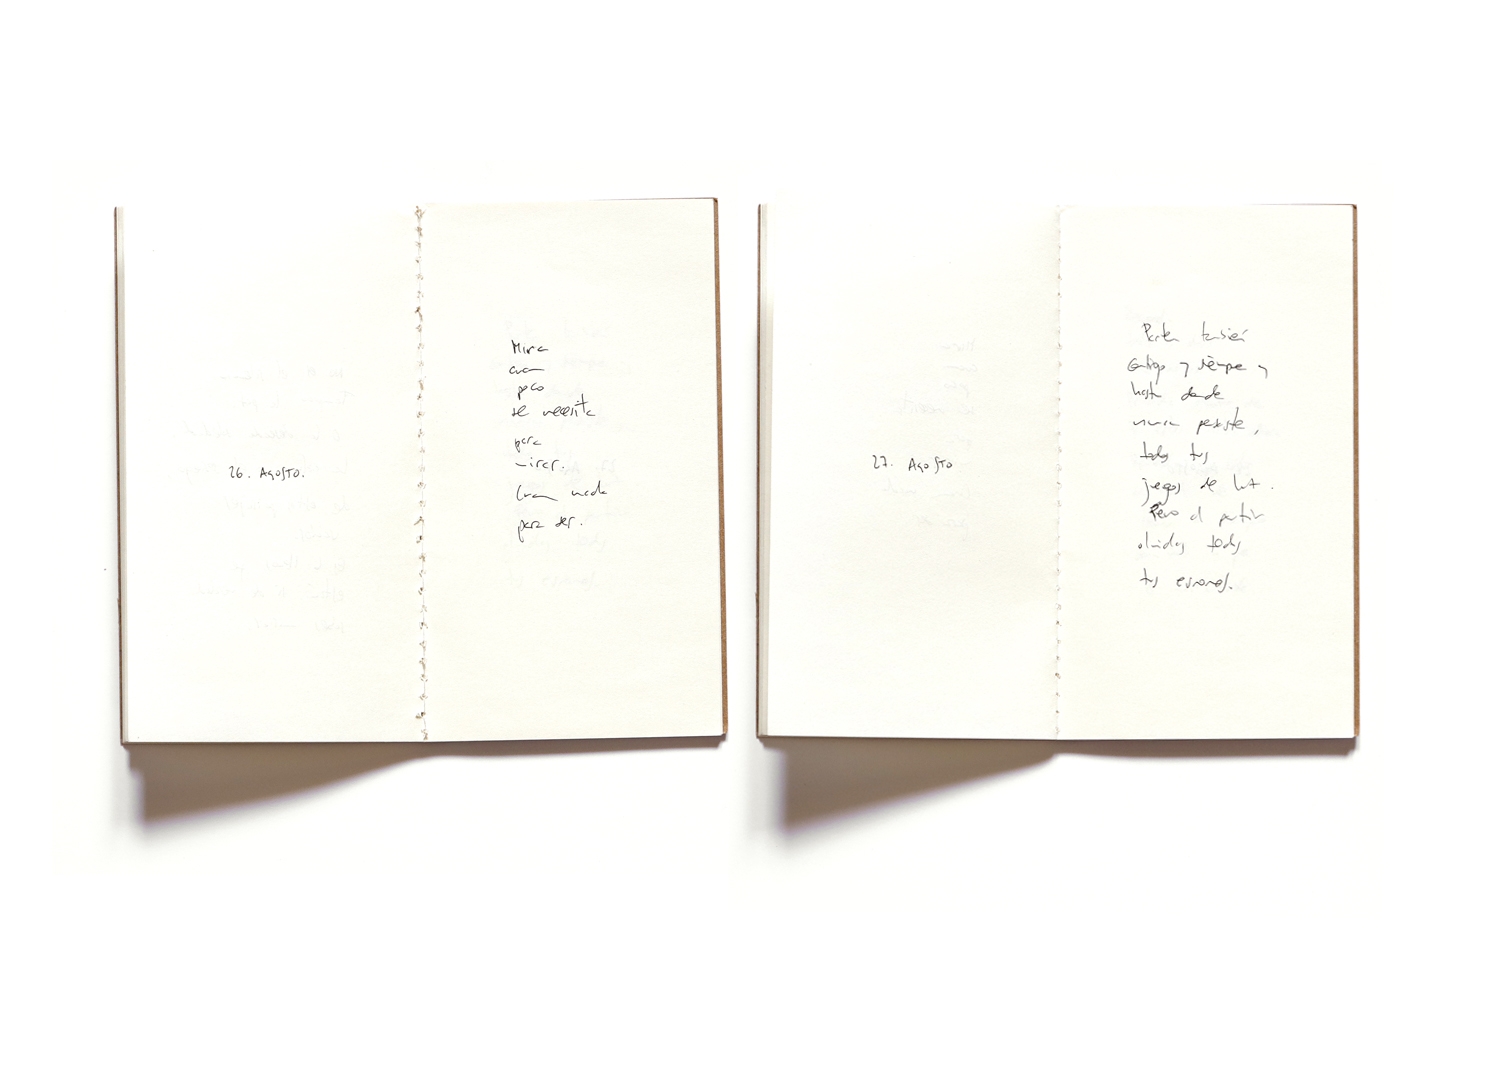 26. Agosto.
Mira
cuan
poco
se necesita
para
mirar.
Cuan nada
para ser.
27. Agosto
Parten también
contigo y siempre y
hasta donde
nunca pesaste,
todos tus
juegos de luz.
Pero al partir
olvidas todos
tus errores.